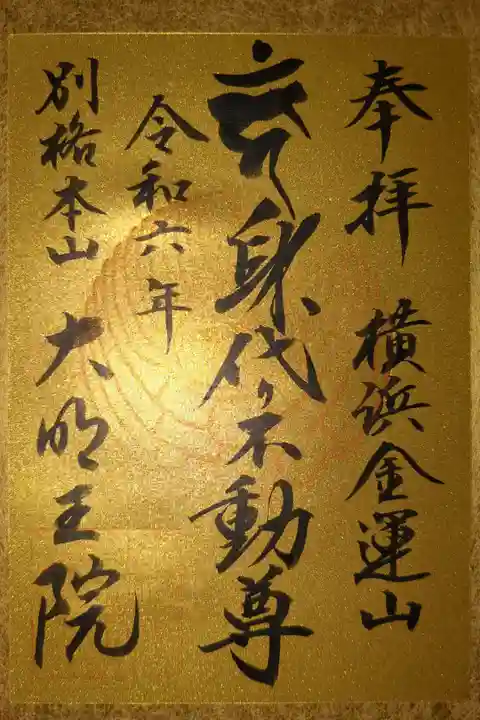 奉拝 横浜金運山
身代り不動尊
令和六年
別格本山 大明王院